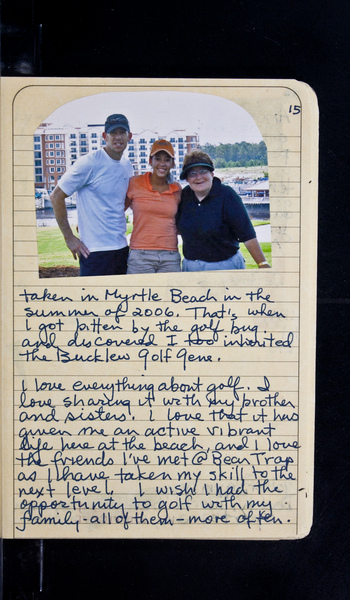 15
taken in Myrtle Beach in the
summer of 2006. That's when
I got bitten by the golf bug
and discovered I too inherited
the Bucklew Golf Gene.
I love everything about golf. I
love sharing it with my brother
and sisters. I love that it has
given me an active vibrant
life here at the beach, and I love
the friends I've met @ Bear Trap
as I have taken my skill to the
next level. I wish I had the
opportunity to golf with my
family - all of them - more often.